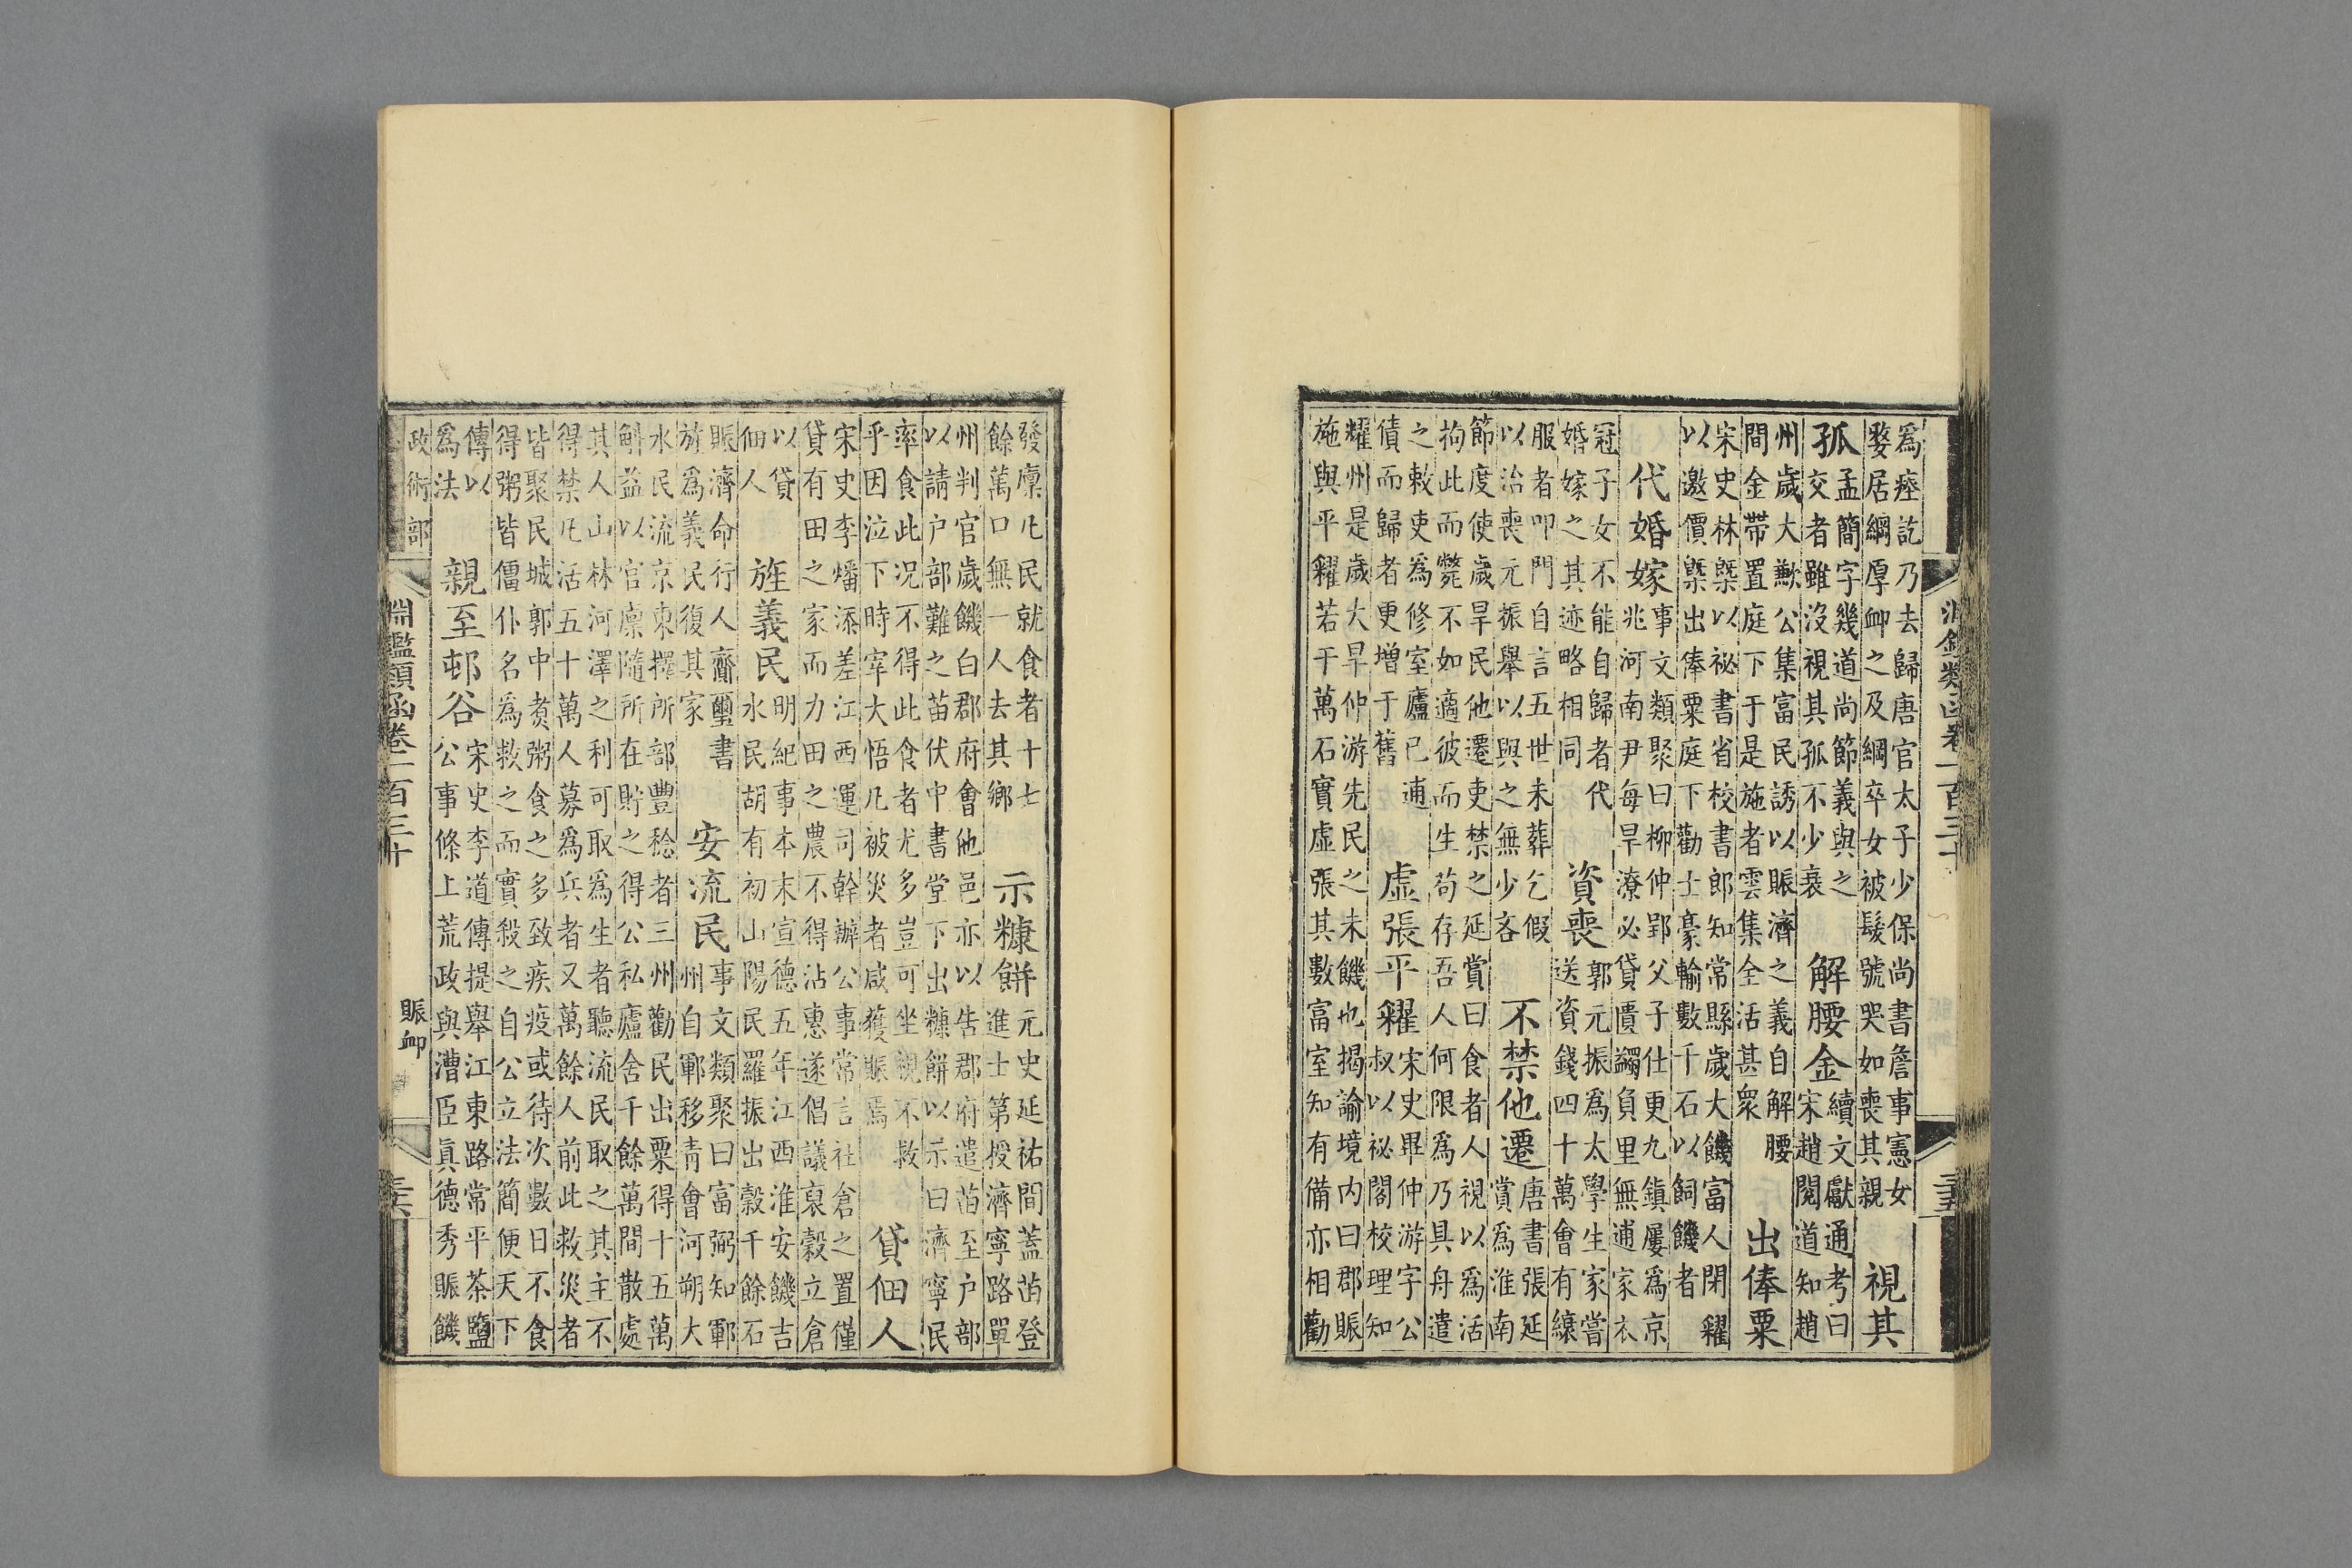 淵鑑類函卷一百三十
三十五
爲瘞訖乃去歸唐官太子少保尚書詹事憲女
婺居綱厚卹之及綱卒女被髮號哭如喪其親
視其
孤
孟簡字幾道尚節義與之
交者雖沒視其孤不少衰
解腰金
續文獻通考曰
宋趙閱道知趙
州歲大歉公集富民誘以賑濟之義自解腰
間金帶置庭下于是施者雲集全活甚眾
出俸粟
宋史林槩以祕書省校書郎知常縣歲大饑富人閉糴
以邀價槩出俸粟庭下勸士豪輸數千石以飼饑者
代婚嫁
事文類聚曰柳仲郢父子仕更九鎮屢爲京
兆河南尹每旱潦必貸匱蠲負里無逋家衣
冠子女不能自歸者代
婚嫁之其迹略相同
資喪
郭元振爲太學生家嘗
送資錢四十萬會有縗
服者叩門自言五世未葬乞假
以治喪元振舉以與之無少吝
不禁他遷
唐書張延
賞爲淮南
節度使歲旱民他遷吏禁之延賞曰食者人視以爲活
拘此而斃不如適彼而生苟存吾人何限爲乃具舟遣
之敕吏爲修室廬已逋
債而歸者更增于舊
虛張平糴
宋史畢仲游字公
叔以祕閣校理知
耀州是歲大旱仲游先民之未饑也揭諭境內曰郡賑
施與平糴若干萬石實虛張其數富室知有備亦相勸
發廩凡民就食者十七
餘萬口無一人去其鄉
示糠餅
元史延祐間蓋苗登
進士第授濟寧路單
州判官歲饑白郡府會他邑亦以告郡府遣苗至户部
以請户部難之苗伏中書堂下出糠餅以示曰濟寧民
率食此况不得此食者尤多豈可坐視不救
乎因泣下時宰大悟凡被災者咸獲賑焉
貸佃人
宋史李燔添差江西運司幹辦公事常言社倉之置僅
貸有田之家而力田之農不得沾惠遂倡議裒穀立倉
以貸
佃人
旌義民
明紀事本末宣德五年江西淮安饑吉
水民胡有初山陽民羅振出穀千餘石
賑濟命行人齎璽書
旌爲義民復其家
安流民
事文類聚曰富弼知鄆
州自鄆移青會河朔大
水民流京東擇所部豐稔者三州勸民出粟得十五萬
斛益以官廩隨所在貯之得公私廬舍千餘萬間散處
其人山林河澤之利可取爲生者聽流民取之其主不
得禁凡活五十萬人募爲兵者又萬餘人前此救災者
皆聚民城郭中煑粥食之多致疾疫或待次數日不食
得粥皆僵仆名爲救之而實殺之自公立法簡便天下
傳以
爲法
親至邨谷
宋史李道傳提舉江東路常平茶鹽
公事條上荒政與漕臣真德秀賑饑
政術部
淵鑑類函卷一百三十
賑卹
三十六